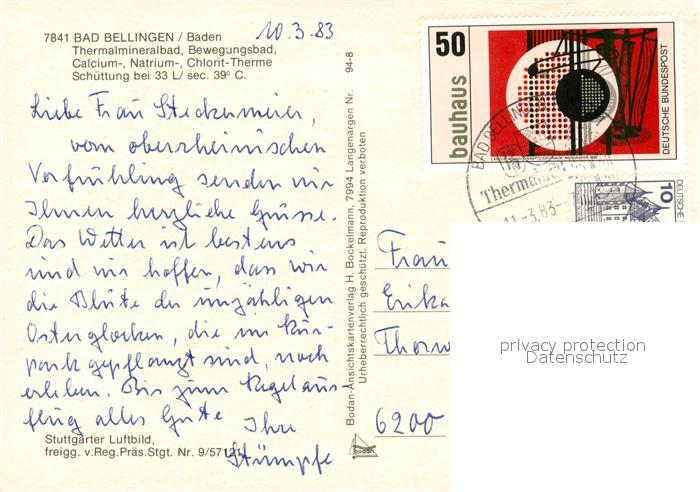 7841 BAD BELLINGEN / Baden
Thermalmineralbad, Bewegungsbad,
Calcium-, Natrium-, Chlorit-Therme
Schüttung bei 33 L/ sec. 39° C.
10.3.83
Liebe Frau Steckenmeier,
vom oberrheinischen
Vorfrühling senden wir
Ihnen herzliche Grüsse.
Das Wetter ist bestens
und wir hoffen, dass wir
die Blüte der unzähligen
Osterglocken, die im Kur-
park gepflanzt sind, noch
erleben. Bis zum Kegelaus-
flug alles Gute Ihre
Stümpfe
Stuttgarter Luftbild,
freigg. v.Reg.Präs.Stgt. Nr. 9/57121
94-8
Bodan-Ansichtskartenverlag H. Bockelmann, 7994 Langenargen Nr.
Urheberrechtlich geschützt. Reproduktion verboten
bodan
50
bauhaus
DEUTSCHE BUNDESPOST
BAD BELLINGEN
Therma
11.-3.83-
10
DEUTSCHE
Frau
Erika
Thorw
6200
privacy protection
Datenschutz